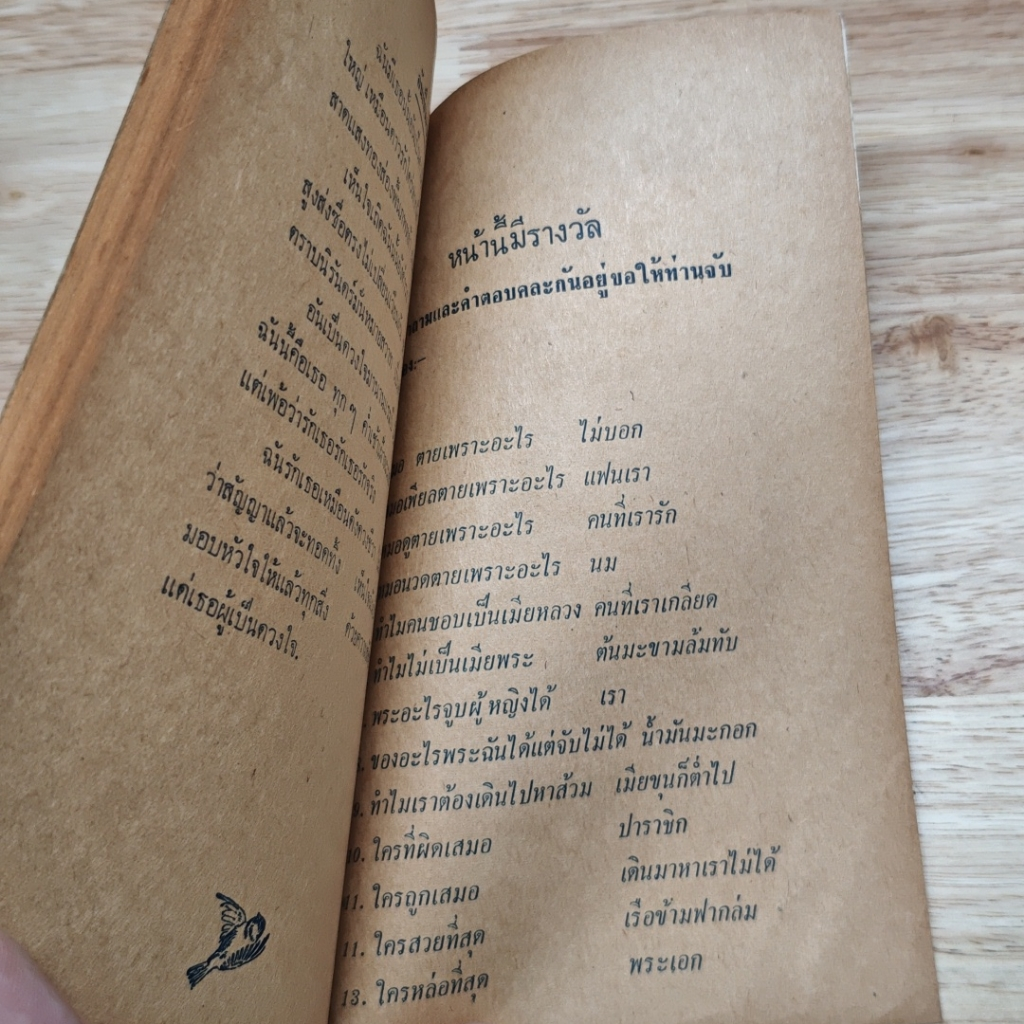 ฉันมีเธอนั้น
ใหญ่ เหมือนดาว
สาดแสงทองส่องพื้น
เห็นใจเถิดฉันนั้น
สูงส่งซื่อตรงไม่เปลี่ยน
ตราบนิรันดร์มั่นหมาย
อันเป็นดวงใจ
ฉันนี้คือเธอ ทุก ๆ ค่ำเช้า
แต่เพ้อว่ารักเธอรักเธอรักจริง
ฉันรักเธอเหมือนดังดวง
ว่าสัญญาแล้วจะทอดทิ้ง
มอบหัวใจให้แล้วทุกสิ่ง
แด่เธอผู้เป็นดวงใจ.
หน้านี้มีรางวัล
ถามและคำตอบคละกันอยู่ขอให้ท่านจับ
:—
ตายเพราะอะไร ไม่บอก
ตายเพราะอะไร แฟนเรา
หมอดูตายเพราะอะไร คนที่เรารัก
หมอนวดตายเพราะอะไร นม
ทำไมคนชอบเป็นเมียหลวง คนที่เราเกลียด
ทำไมไม่เป็นเมียพระ ต้นมะขามล้มทับ
พระอะไรจูบผู้หญิงได้ เรา
ของอะไรพระฉันได้แต่จับไม่ได้ น้ำมันมะกอก
9. ทำไมเราต้องเดินไปหาส้วม เมียขุนก็ต่ำไป
10. ใครที่ผิดเสมอ ปาราชิก
11. ใครถูกเสมอ เดินมาหาเราไม่ได้
11. ใครสวยที่สุด เรือข้ามฟากล่ม
13. ใครหล่อที่สุด พระเอก